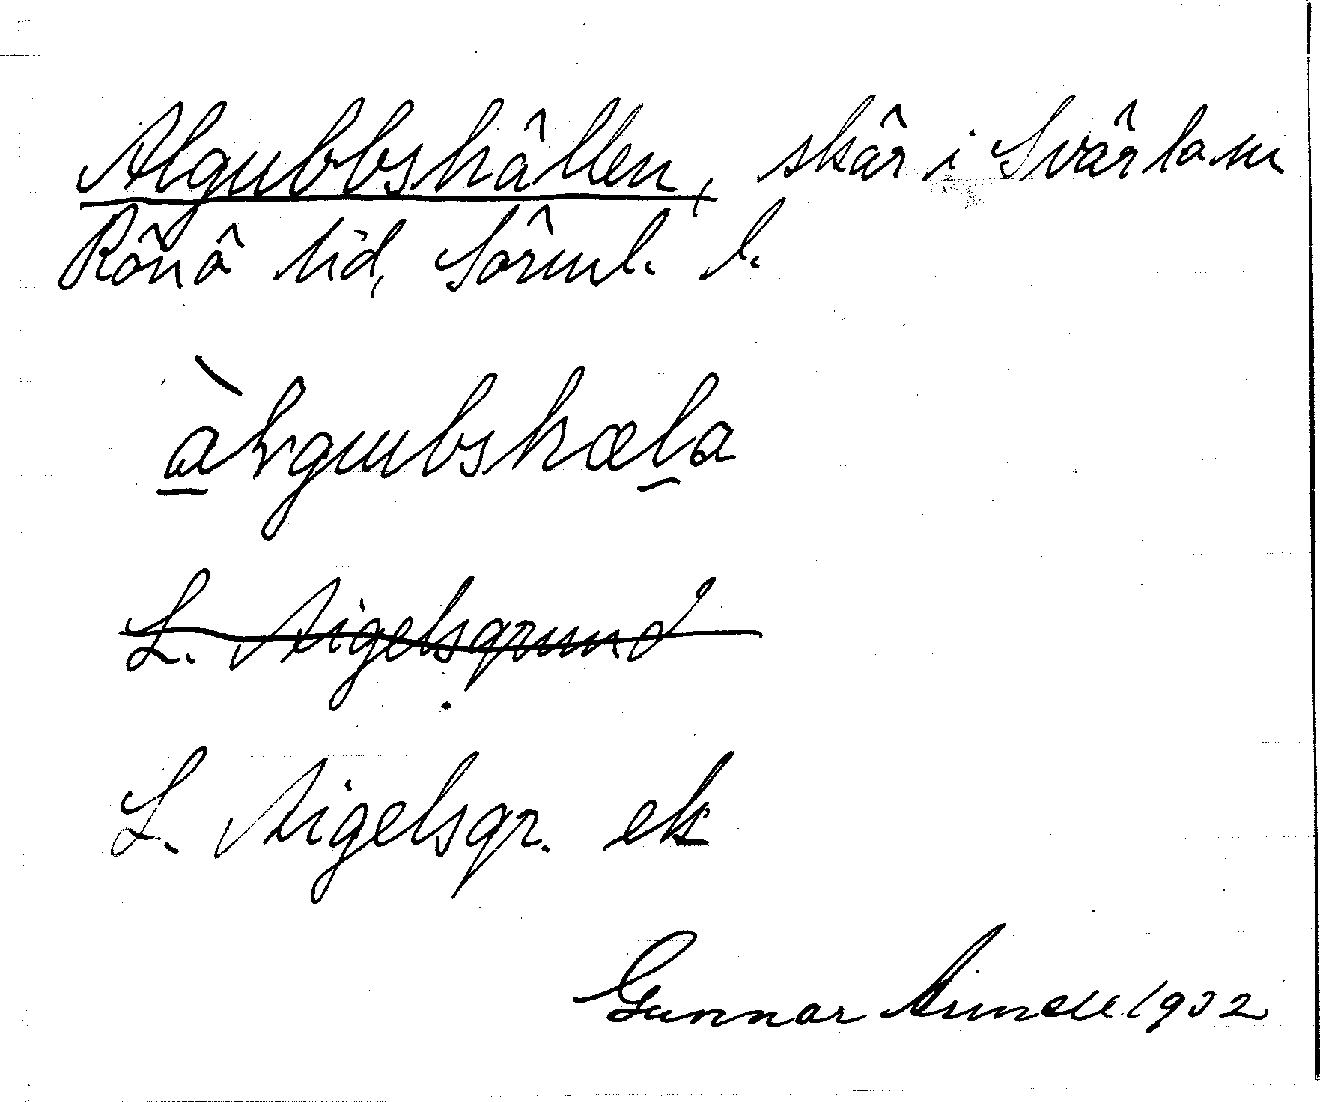 Algubbshällen, skär i Svärta sn
Rönö hd, Sörml. l.
L. Aigelsgrund
L. Aigelsgr. ek
Gunnar Arnell 1932